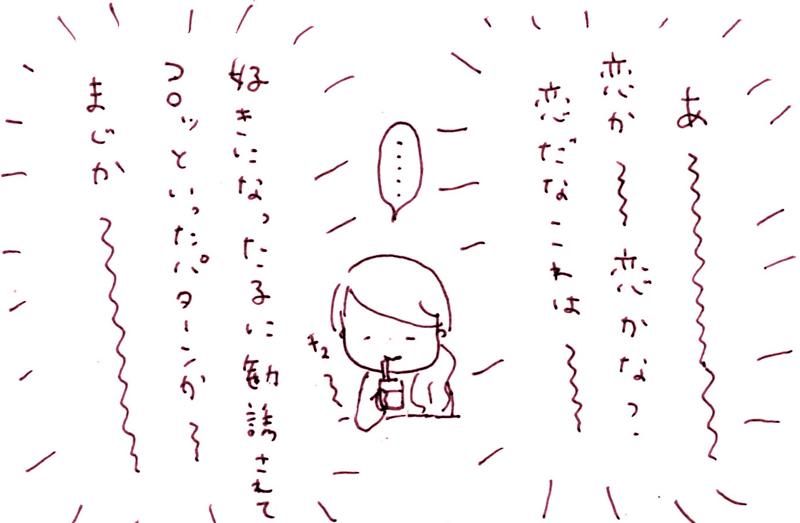 あ〜〜〜〜
恋か〜〜恋かな?
恋だなこれは〜〜
……
チュ〜
好きになった子に勧誘されて
コロッといったパターンか〜
まじか〜〜〜〜